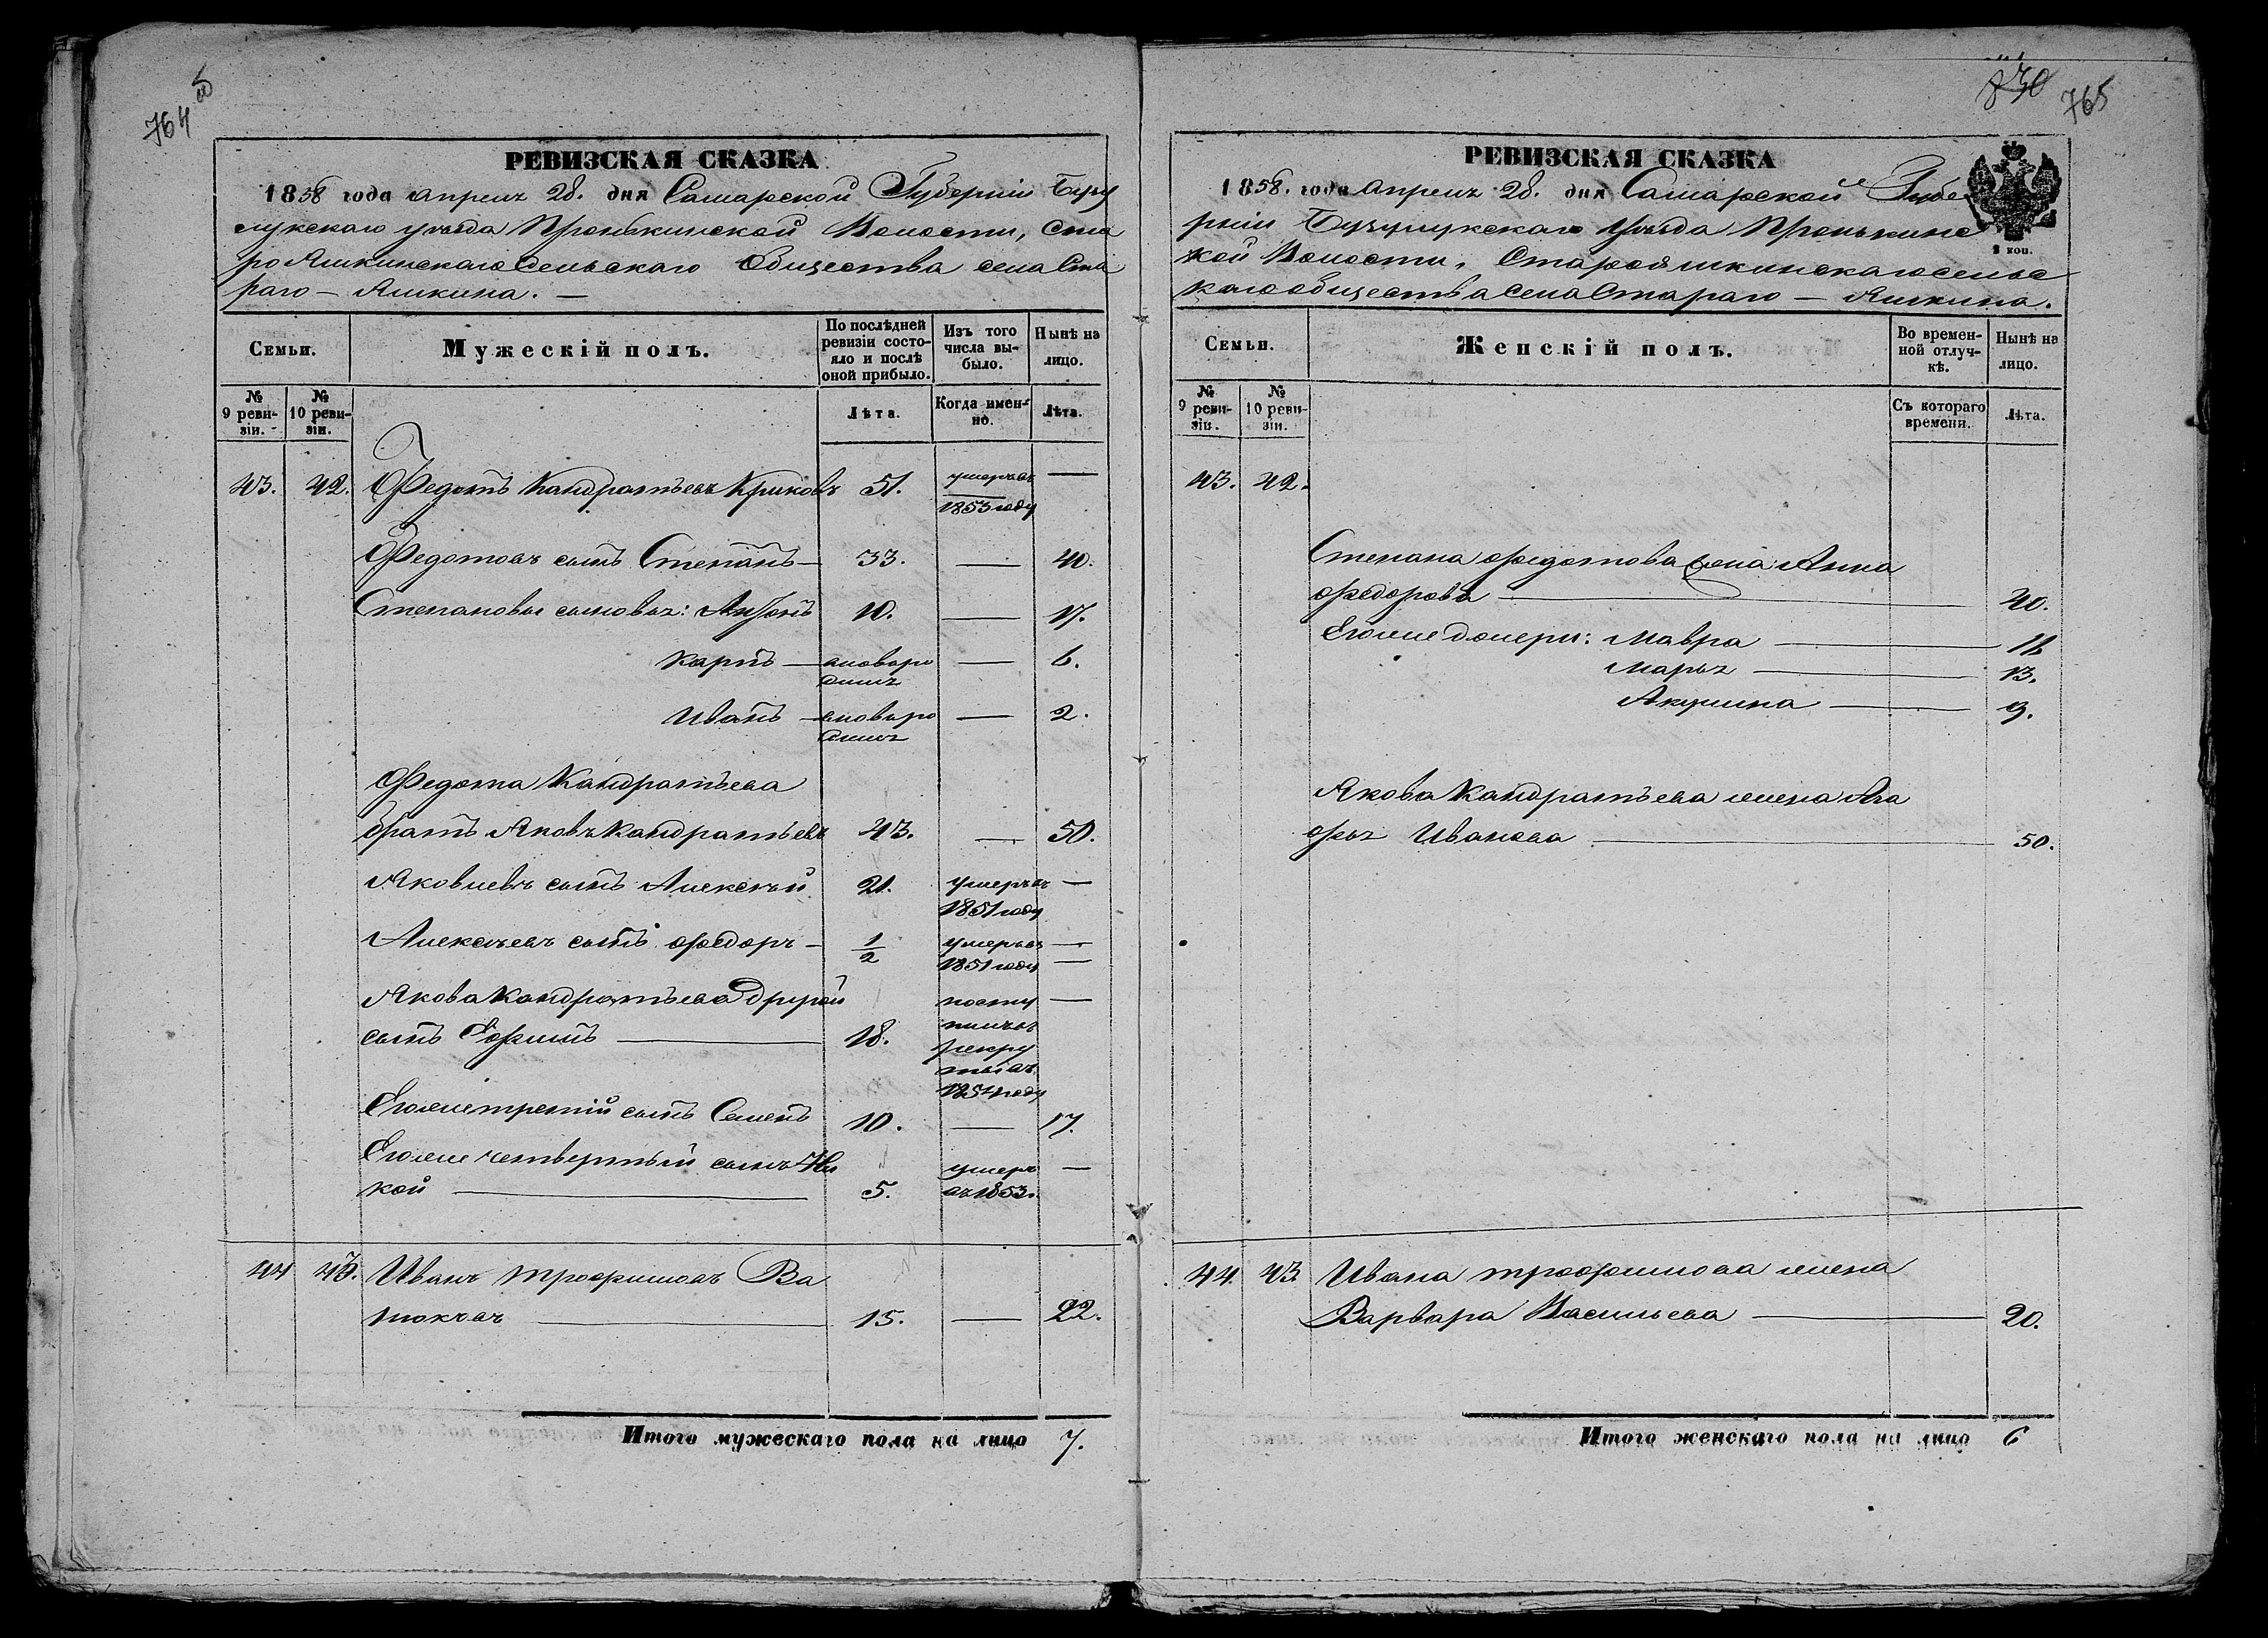 764 об
РЕВИЗСКАЯ СКАЗКА
1858 года апреля 28. дня Самарской Губерніи Бузу
лукскаго уѣзда Пронькинской Волости, Ста
ро Яшкинскаго Сельскаго Общества села Ста
раго – Яшкина. –
Семьи.
Мужескій полъ.
По послѣдней ревизіи состо-
яло и послѣ оной прибыло.
Изъ того числа вы-
было.
Нынѣ на лицо.
№ 9 реви-
зіи.
№ 10 реви-
зіи.
Лѣта.
Когда имен-
но.
Лѣта.
43. 42. Федотъ Кандратьевъ Криковъ 51. умеръ въ —
1853 году
Федотовъ сынъ Степанъ — 33. — 40.
Степановы сыновья: Антонъ 10. — 17.
Карпъ — новоро — 6.
жденъ
Иванъ — новоро — 2.
жденъ
Федота Кандратьева
братъ Яковъ Кандратьевъ 43. — 50.
Яковлевъ сынъ Алексѣй 21. умеръ въ —
1851 году
Алексѣевъ сынъ Федоръ — 1/2 умеръ въ —
1851 году —
Якова Кандратьева другой посту —
сынъ Ефимъ — 18. пилъ въ
рекру
ты въ
1854 году
Его же третій сынъ Семенъ 10. — 17.
Его же четвертый сынъ Ни умеръ —
кой — 5. въ 1853.
44 43. Иванъ Трофимовъ Ва
нюкъвъ — 15. — 22.
Итого мужескаго пола на лицо 7.
830 765
РЕВИЗСКАЯ СКАЗКА
1858. года апреля 28. дня Самарской Губе
рніи Бузулукскаго Уѣзда Пронькинс
кой Волости, Староя шкинскаго сельс
каго общества села Стараго – Яшкина.
2 коп.
Семьи.
Женскій полъ.
Во времен-
ной отлуч-
кѣ.
Нынѣ на лицо.
№ 9 реви-
зіи.
№ 10 реви-
зіи.
Съ котораго времени.
Лѣта.
43. 42.
Степана Федотова жена Анна
Федорова — 40.
Его же дочери: Мавра — 16
Марья — 13.
Акулина — 9.
Якова Кандратьева жена Ага
фья Иванова — 50.
44. 43. Ивана Трофимова жена
Варвара Васильева — 20.
Итого женскаго пола на лицо 6